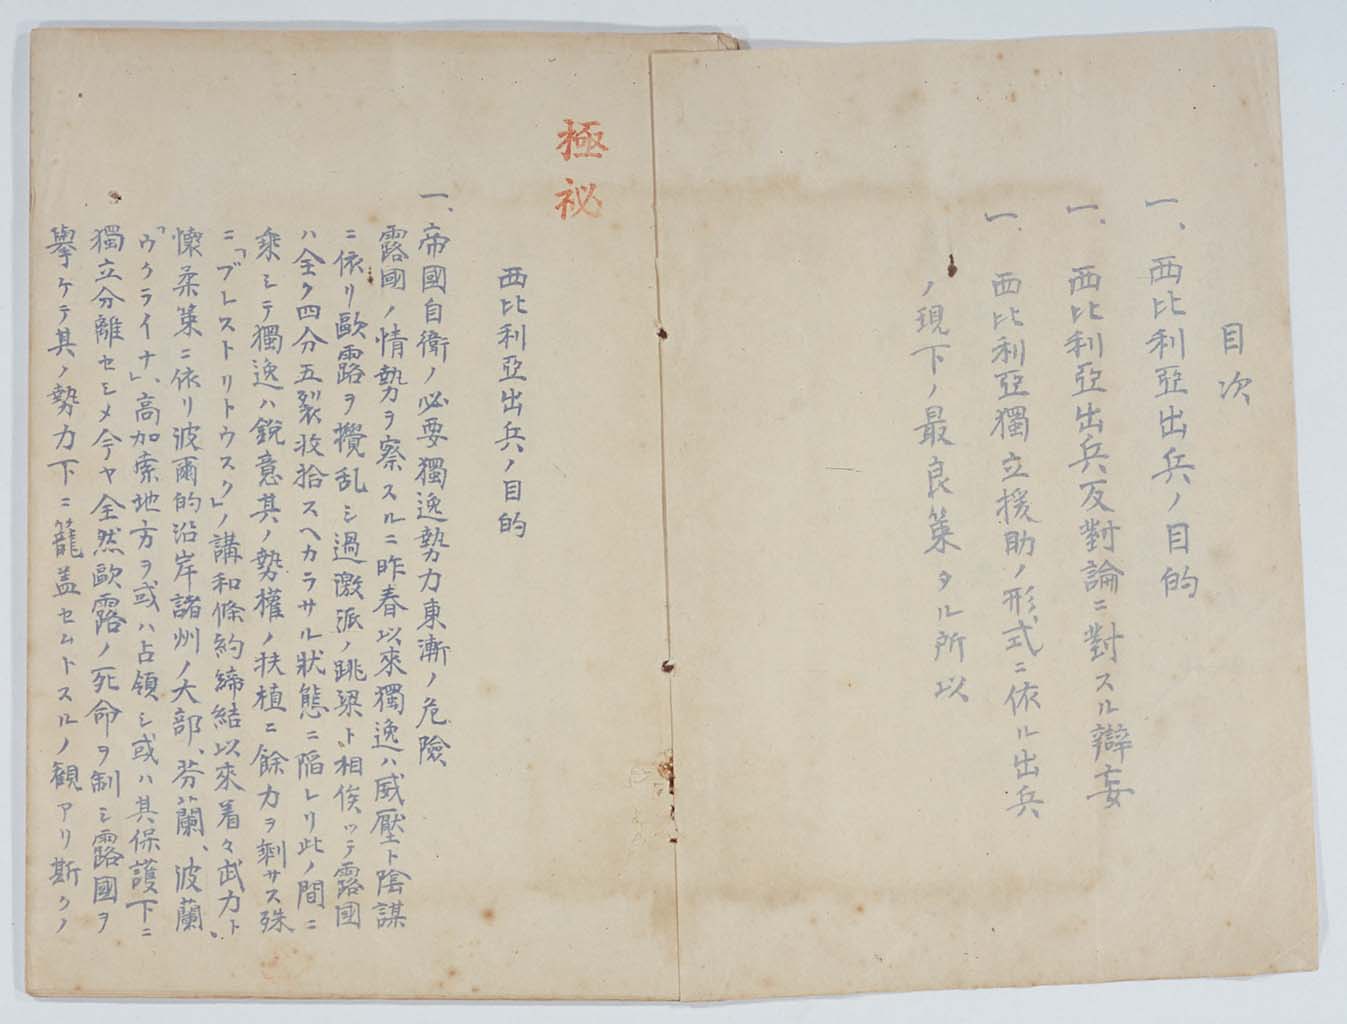 目次
一、西比利亞出兵ノ目的
一、西比利亞出兵反對論ニ對スル辯妄
一、西比利亞獨立援助ノ形式ニ依ル出兵
ノ現下ノ最良策タル所以
極祕
西比利亞出兵ノ目的
一、帝國自衛ノ必要獨逸勢力東漸ノ危險
露國ノ情勢ヲ察スルニ昨春以來獨逸ハ威壓ト陰謀
ニ依リ歐露ヲ攪乱シ過激派ノ跳梁ト相俟ッテ露國
ハ全ク四分五裂收拾スヘカラサル狀態ニ陥レリ此ノ間ニ
乘シテ獨逸ハ銳意其ノ勢權ノ扶植ニ餘力ヲ剩サス殊
ニ「ブレストリトウスク」ノ講和條約締結以來着々武力ト
懷柔策ニ依リ波爾的沿岸諸州ノ大部、芬蘭、波蘭、
「ウクライナ」、高加索地方ヲ或ハ占領シ或ハ其保護下ニ
獨立分離セシメ今ヤ全然歐露ノ死命ヲ制シ露國ヲ
擧ケテ其ノ勢力下ニ籠盖セムトスルノ観アリ斯クノ